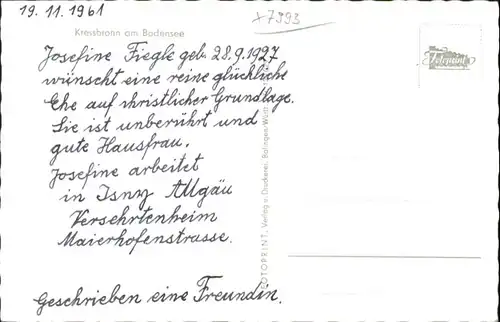 19. 11. 1961
x7993
Kressbronn am Bodensee
Josefine Fiegle geb. 28.9.1927
wünscht eine reine glückliche
Ehe auf christlicher Grundlage.
Sie ist unberührt und
gute Hausfrau.
Josefine arbeitet
in Isny Allgäu
Versehrtenheim
Maierhofenstrasse.
Geschrieben eine Freundin.
FOTOPRINT, Verlag u. Druckerei, Balingen/Württ.
Fotoprint